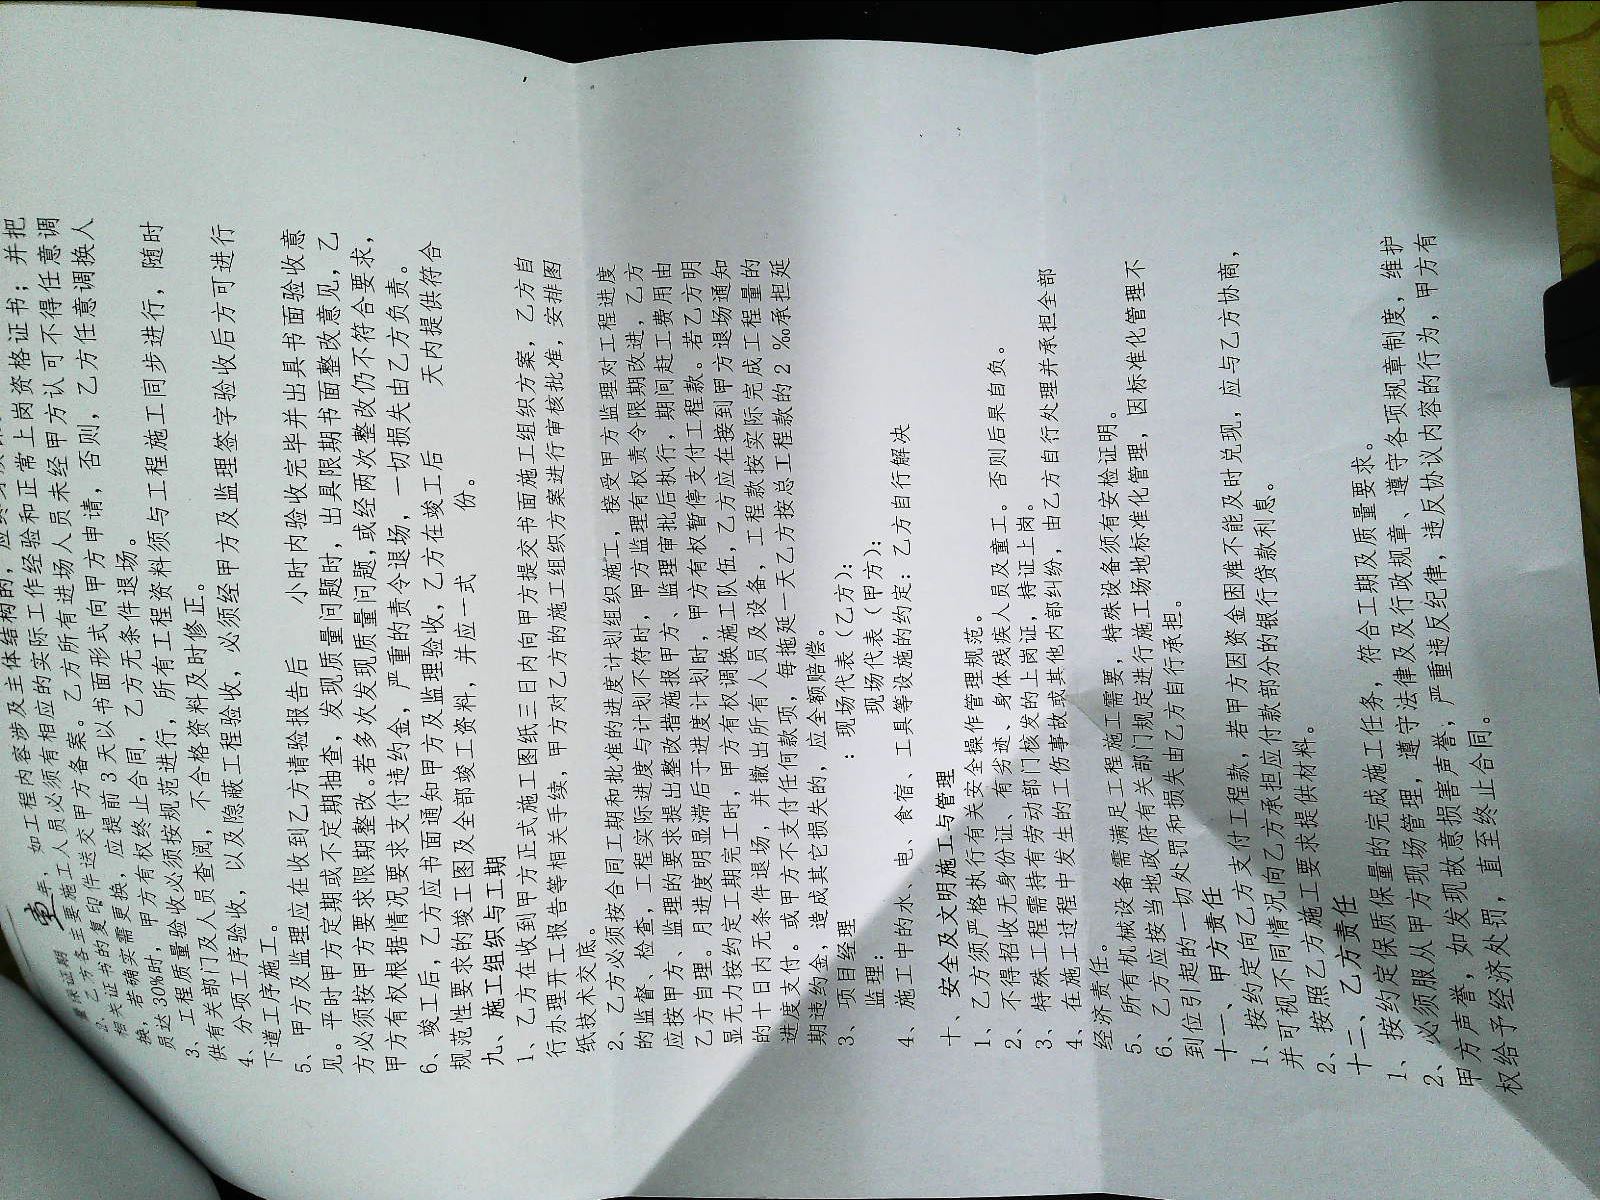 量保证说明 壹年，如工程内容涉及主体结构的，应
2、乙方各主要施工人员必须有相应的实际工作经验和正常上岗资格证书；并把
相关证书的复印件送交甲方备案。乙方所有进场人员未经甲方认可不得任意调
换，若确实需更换，应提前3天以书面形式向甲方申请，否则，乙方任意调换人
员达30%时，甲方有权终止合同，乙方无条件退场。
3、工程质量验收必须按规范进行，所有工程资料须与工程施工同步进行，随时
供有关部门及人员查阅，不合格资料及时修正。
4、分项工序验收，以及隐蔽工程验收，必须经甲方及监理签字验收后方可进行
下道工序施工。
5、甲方及监理应在收到乙方请验报告后 小时内验收完毕并出具书面验收意
见。平时甲方定期或不定期抽查，发现质量问题时，出具限期书面整改意见，乙
方必须按甲方要求限期整改。若多次发现质量问题，或经两次整改仍不符合要求，
甲方有权根据情况要求支付违约金，严重的责令退场，一切损失由乙方负责。
6、竣工后，乙方应书面通知甲方及监理验收，乙方在竣工后 天内提供符合
规范性要求的竣工图及全部竣工资料，并应一式 份。
九、施工组织与工期
1、乙方在收到甲方正式施工图纸三日内向甲方提交书面施工组织方案，乙方自
行办理开工报告等相关手续，甲方对乙方的施工组织方案进行审核批准，安排图
纸技术交底。
2、乙方必须按合同工期和批准的进度计划组织施工，接受甲方监理对工程进度
的监督、检查，工程实际进度与计划不符时，甲方监理有权责令限期改进，乙方
应按甲方、监理的要求提出整改措施报甲方、监理审批后执行，期间赶工费用由
乙方自理。月进度明显滞后于进度计划时，甲方有权暂停支付工程款。若乙方明
显无力按约定工期完工时，甲方有权调换施工队伍，乙方应在接到甲方退场通知
的十日内无条件退场，并撤出所有人员及设备，工程款按实际完成工程量的
进度支付。或甲方不支付任何款项，每拖延一天乙方按总工程款的2‰承担延
期违约金，造成其它损失的，应全额赔偿。
3、项目经理 ：现场代表（乙方）：
监理： 现场代表（甲方）：
4、施工中的水、电、食宿、工具等设施的约定：乙方自行解决
十、安全及文明施工与管理
1、乙方须严格执行有关安全操作管理规范。
2、不得招收无身份证、有劣迹、身体残疾人员及童工。否则后果自负。
3、特殊工程需持有劳动部门核发的上岗证，持证上岗。
4、在施工过程中发生的工伤事故或其他内部纠纷，由乙方自行处理并承担全部
经济责任。
5、所有机械设备需满足工程施工需要，特殊设备须有安检证明。
6、乙方应按当地政府有关部门规定进行施工场地标准化管理，因标准化管理不
到位引起的一切处罚和损失由乙方自行承担。
十一、甲方责任
1、按约定向乙方支付工程款，若甲方因资金困难不能及时兑现，应与乙方协商，
并可视不同情况向乙方承担应付款部分的银行贷款利息。
2、按照乙方施工要求提供材料。
十二、乙方责任
1、按约定保质保量的完成施工任务，符合工期及质量要求。
2、必须服从甲方现场管理，遵守法律及及行政规章、遵守各项规章制度，维护
甲方声誉，如发现故意损害声誉，严重违反纪律，违反协议内容的行为，甲方有
权给予经济处罚，直至终止合同。